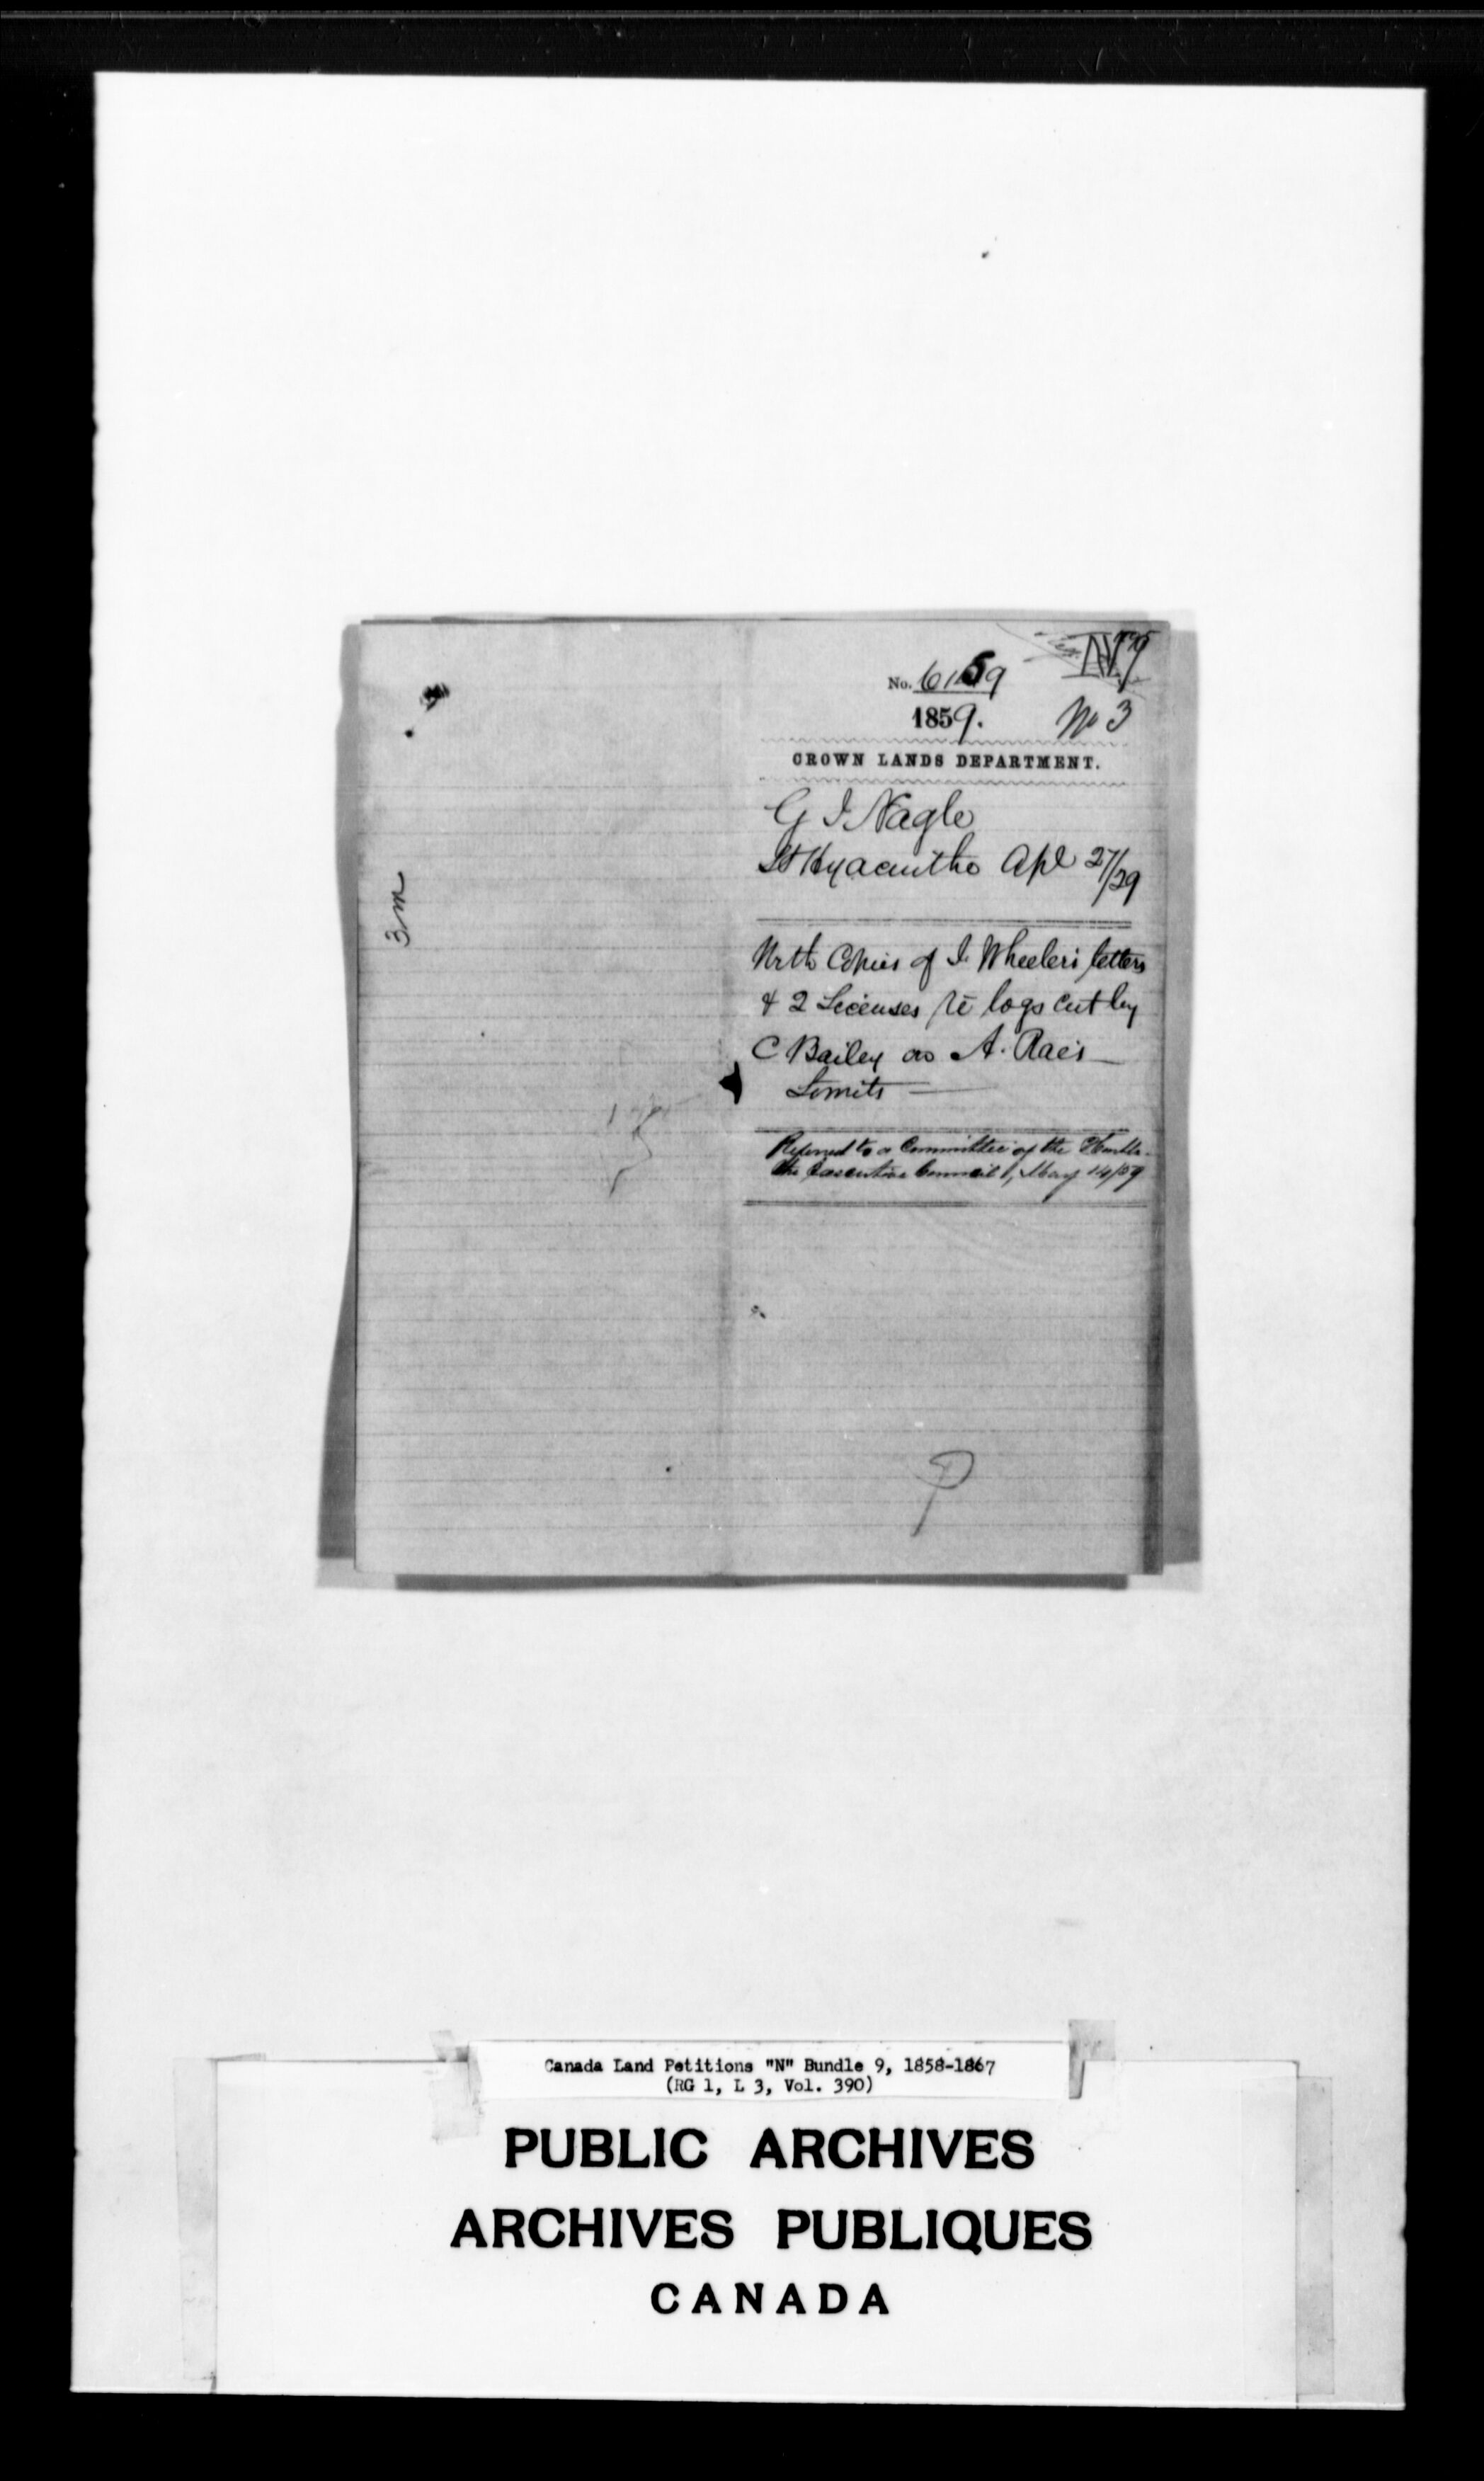 N 9
No. 6159
1859. No 3
CROWN LANDS DEPARTMENT.
G I Nagle
St Hyacinthe Apl 27/29
With Copies of I. Wheeler's letters
& 2 Licenses re logs cut by
C Bailey on A. Rae's
Limits
Referred to a Committee of the Honble.
the Executive Council, May 14/59
3 m
Canada Land Petitions "N" Bundle 9, 1858-1867
(RG 1, L 3, Vol. 390)
PUBLIC ARCHIVES
ARCHIVES PUBLIQUES
CANADA